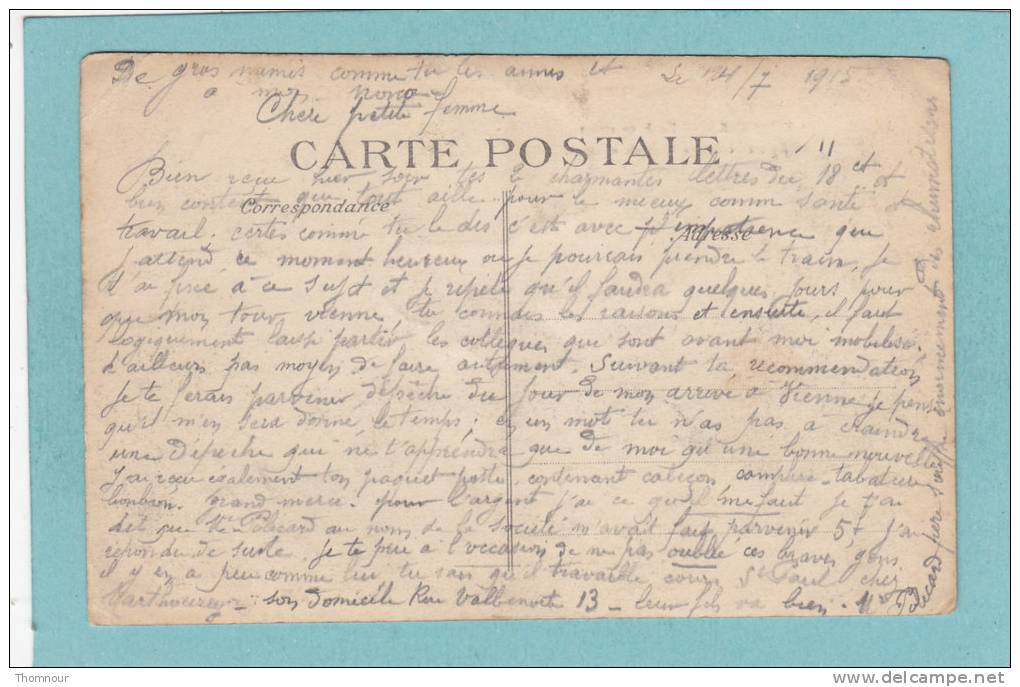 De gros mimis comme tu les aimes et
à mon nono
Le 24/7 1915
Chère petite femme
CARTE POSTALE
11
Correspondance
Adresse
Bien reçu hier soir tes 2 charmantes lettres du 18 ct et
bien content que tout aille pour le mieux comme santé
travail. certes comme tu le dis c'est avec impatience que
j'attend ce moment heureux ou je pourrais prendre le train, Je
t'ai fixé à ce sujet et je répète qu'il faudra quelques jours pour
que mon tour vienne tu connais les raisons et ensuite, il faut
logiquement laissé partir les collègues que sont avant moi mobilisé.
d'ailleurs pas moyen de faire autrement. Suivant ta recommendation
je te ferais parvenir dépêche du jour de mon arrivé à Vienne je pense
qu'il m'en sera donné le temps; en un mot tu n'as pas a craindre
une dépêche qui ne t'apprendra que de moi qu'une bonne nouvelle
J'ai reçu également ton paquet poste contenant caleçon tabatière
bonbon. grand merci. pour l'argent j'ai ce qu'il me faut je t'ai
dit que Mr Policard au nom de la Société m'avait fait parvenir 5f J'ai
repondu de suite je te prie à l'occasion de ne pas oublié ces braves gens
il y en a peu comme lui tu sais qu'il travaille cours St Paul chez
son domicile Rue Valbenoite 13 - leur fils va bien. Mr
Policard père